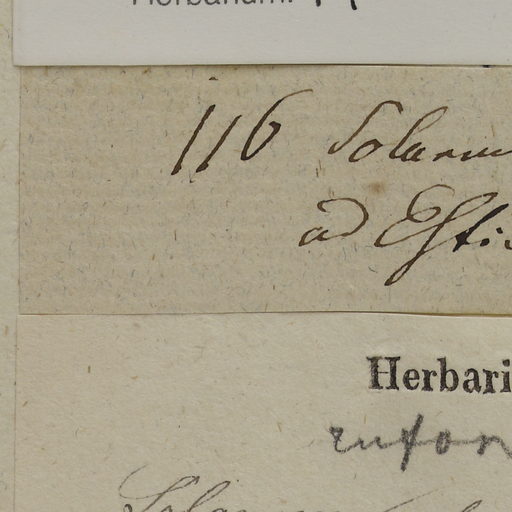 Herbarium.
116 Solanum
ad Esti
Herbari
Solanum